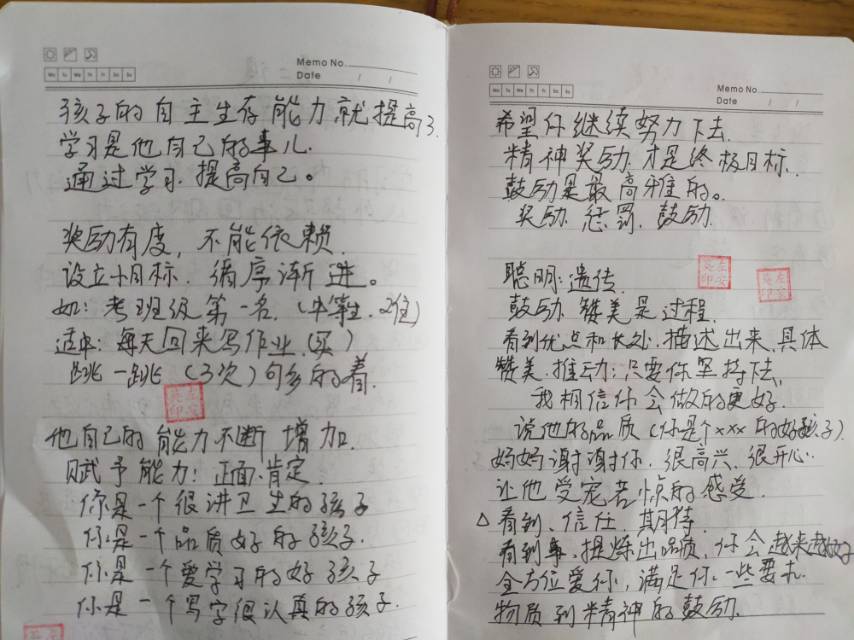 Memo No.
Date / /
Mo Tu We Th Fr Sa Su
孩子的自主生存能力就提高了.
学习是他自己的事儿.
通过学习.提高自己。
奖励有度,不能依赖.
设立小目标.循序渐进。
如:考班级第一名.(中等生.
适中:每天回来写作业.(买)
跳一跳(3次)句多的着.
他自己的能力不断增加.
赋予能力:正面.肯定.
你是一个很讲卫生的孩子
你是一个品质好的孩子.
你是一个爱学习的好孩子
你是一个写字很认真的孩子.
Memo No.
Date / /
Mo Tu We Th Fr Sa Su
希望你继续努力下去.
精神奖励.才是终极目标.
鼓励是最高雅的。
奖励.惩罚.鼓励.
聪明:遗传.
鼓励.赞美是过程.
看到优点和长处.描述出来.具体
赞美.推动:只要你坚持下去,
我相信你会做的更好.
说他的品质(你是个xxx的好孩子).
妈妈谢谢你.很高兴.很开心..
让他受宠若惊的感受.
△看到、信任.期待.
看到事.提炼出品质.你会越来越好
全方位爱你,满足你一些要求.
物质到精神的鼓励.